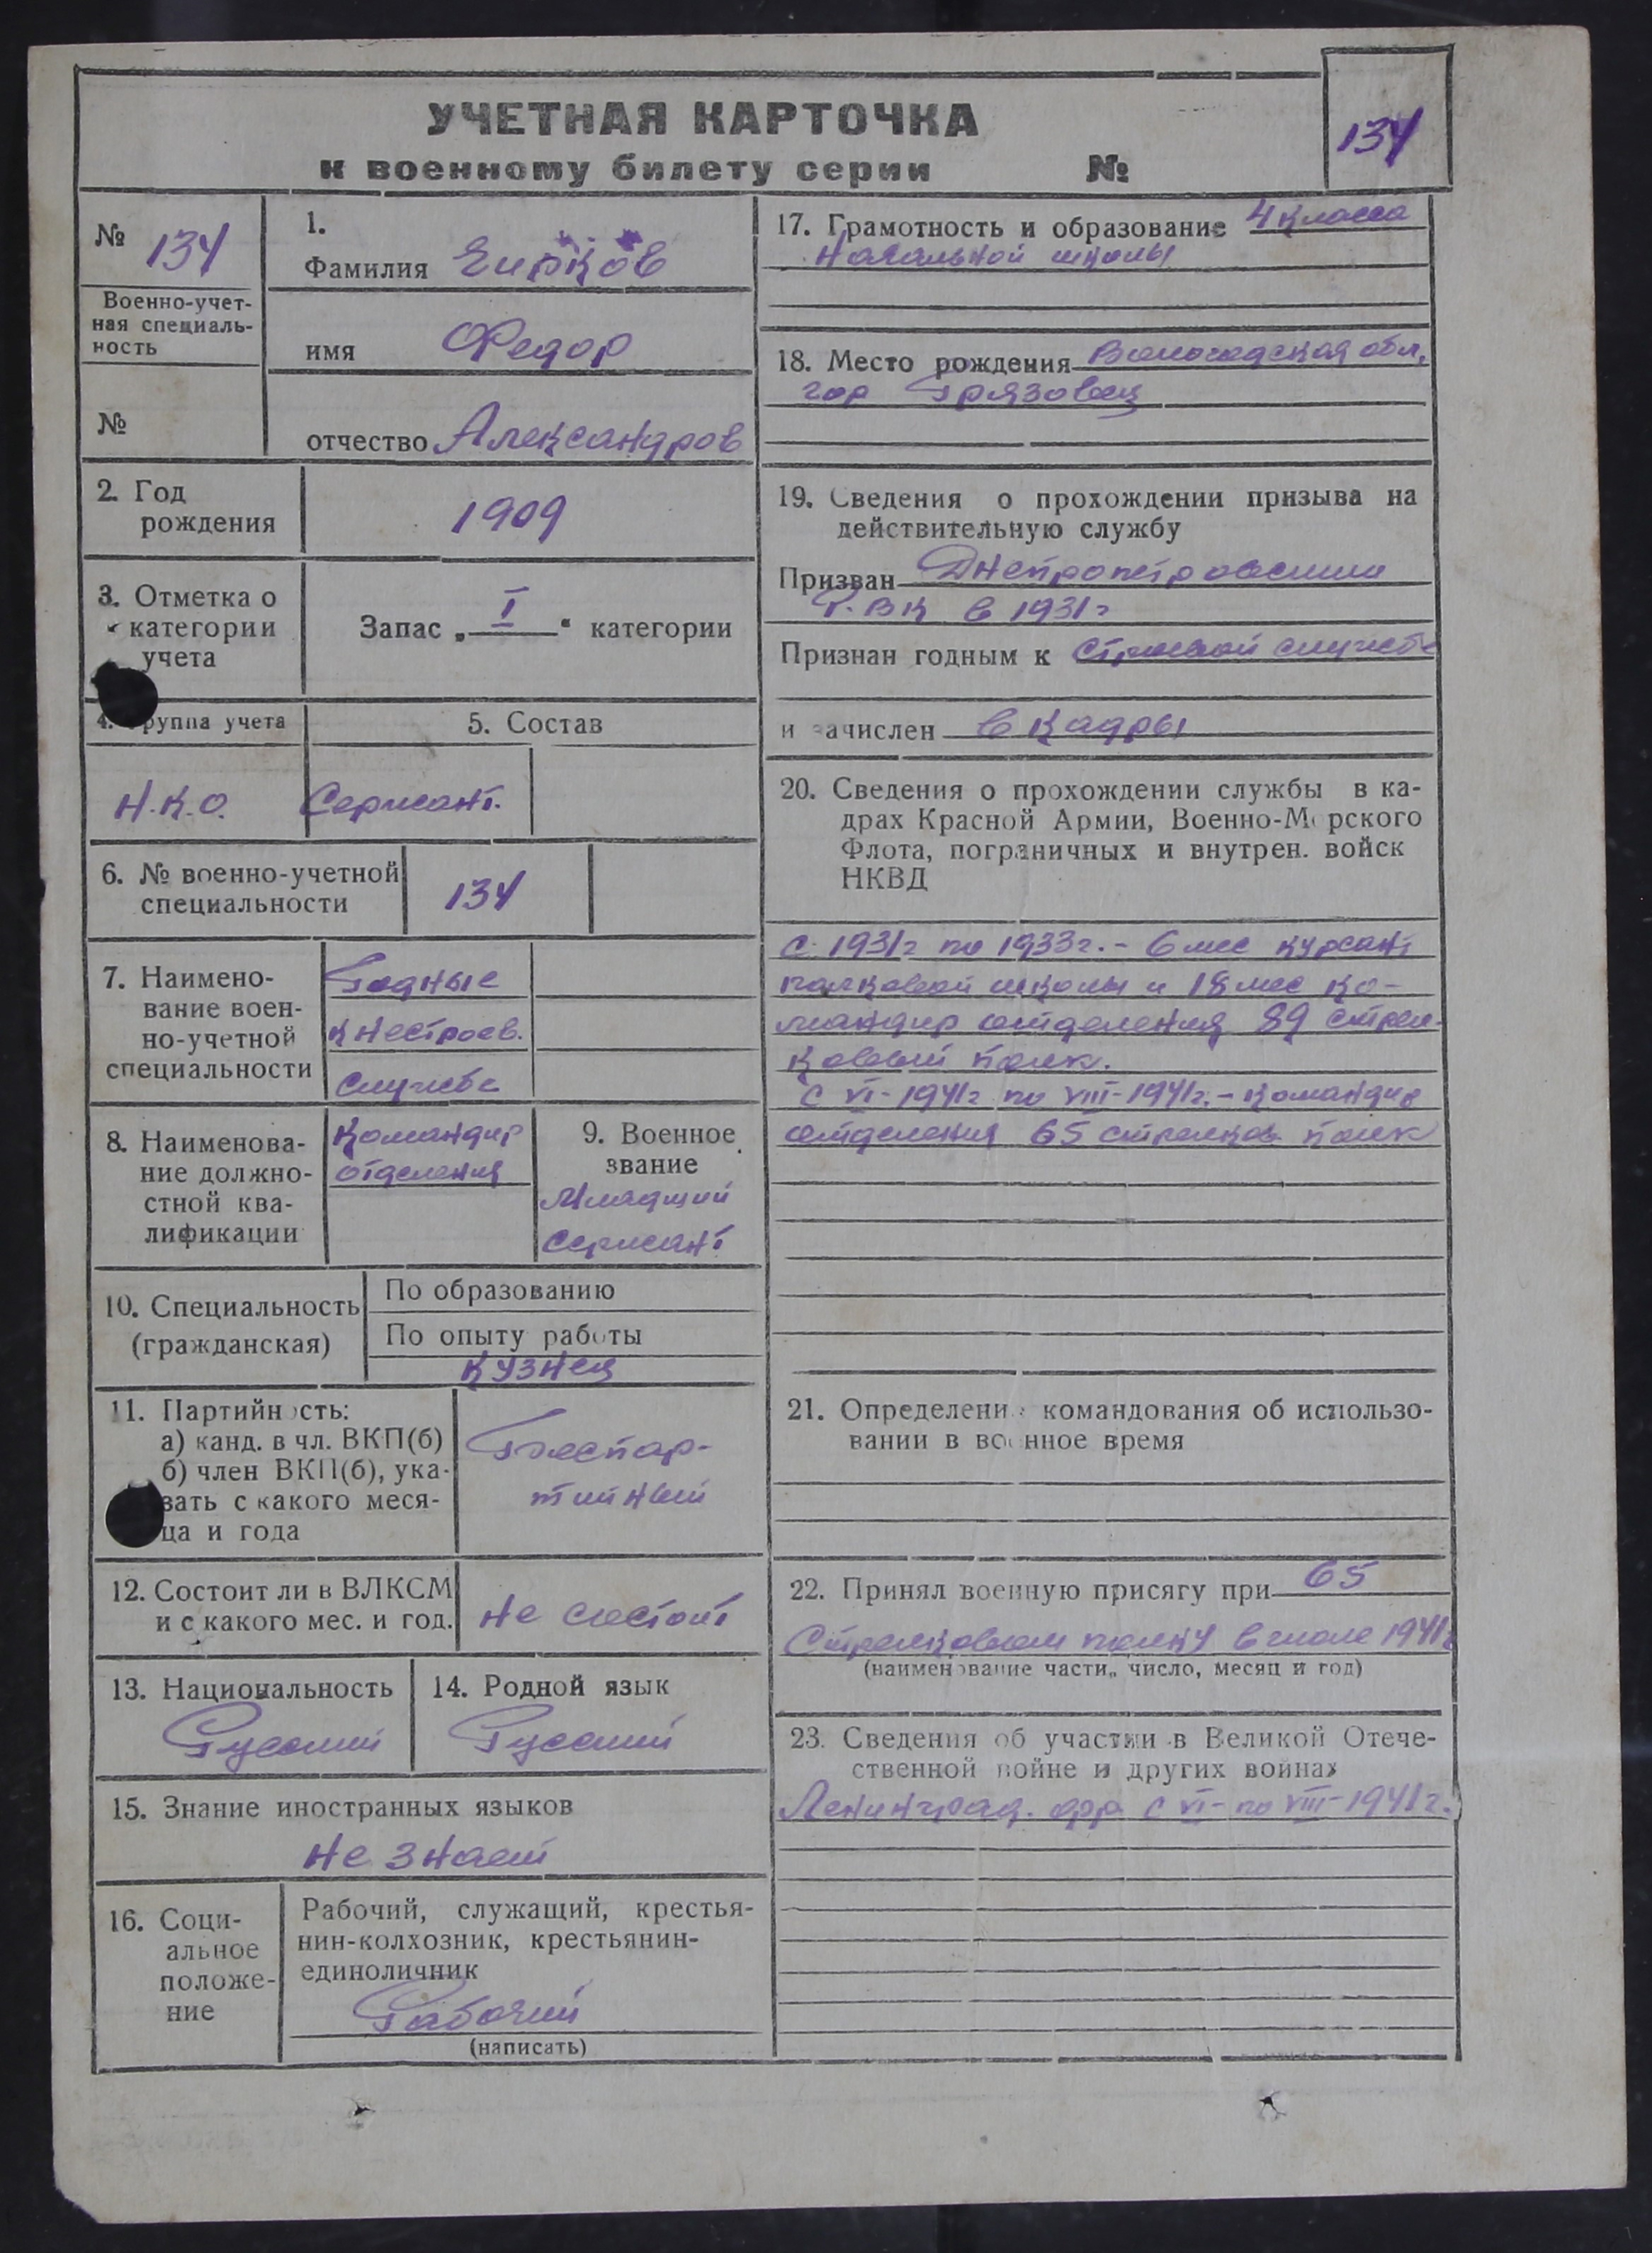 УЧЕТНАЯ КАРТОЧКА
к военному билету серии №
134
№ 134
Военно-учет-
ная специаль-
ность
№
1.
Фамилия Ецрков
имя Федор
отчество Александров
2. Год
рождения
1909
3. Отметка о
категории
учета
Запас „ I “ категории
4. группа учета
Н.К.О.
5. Состав
Сержант.
6. № военно-учетной
специальности
134
7. Наимено-
вание воен-
но-учетной
специальности
Годные
к нестроев.
службе
8. Наименова-
ние должно-
стной ква-
лификации
Командир
отделения
9. Военное
звание
Младший
сержант
10. Специальность
(гражданская)
По образованию
По опыту работы
кузнец
11. Партийность:
а) канд. в чл. ВКП(б)
б) член ВКП(б), ука-
зать с какого меся-
ца и года
Беспар-
тийный
12. Состоит ли в ВЛКСМ
и с какого мес. и год.
не состоит
13. Национальность
Русский
14. Родной язык
Русский
15. Знание иностранных языков
не знает
16. Соци-
альное
положе-
ние
Рабочий, служащий, крестья-
нин-колхозник, крестьянин-
единоличник
Рабочий
(написать)
17. Грамотность и образование 4 класса
начальной школы
18. Место рождения Вологодская обл.
гор Грязовец
19. Сведения о прохождении призыва на
действительную службу
Призван Днепропетровским
Р.ВК в 1931г
Признан годным к строевой службе
и зачислен в кадры
20. Сведения о прохождении службы в ка-
драх Красной Армии, Военно-Морского
Флота, пограничных и внутрен. войск
НКВД
с 1931г по 1933г. - 6 мес курсант
полковой школы и 18 мес ко-
мандир отделения 89 стрел-
ковый полк.
с VI-1941г по VIII-1941г. - командир
отделения 65 стрелков. полк
21. Определение командования об использо-
вании в военное время
22. Принял военную присягу при 65
Стрелковом полку в июле 1941г
(наименование части, число, месяц и год)
23. Сведения об участии в Великой Отече-
ственной войне и других войнах
Ленинград. фр. с VI- по VIII-1941г.